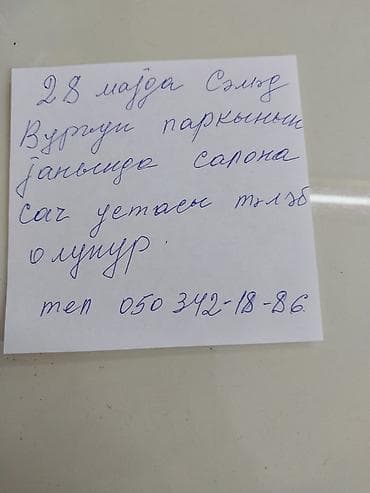 28 мајда Сәмәд
Вургун паркынын
јанында салона
сач устасы тәләб
олунур.
тел 050 342-18-86